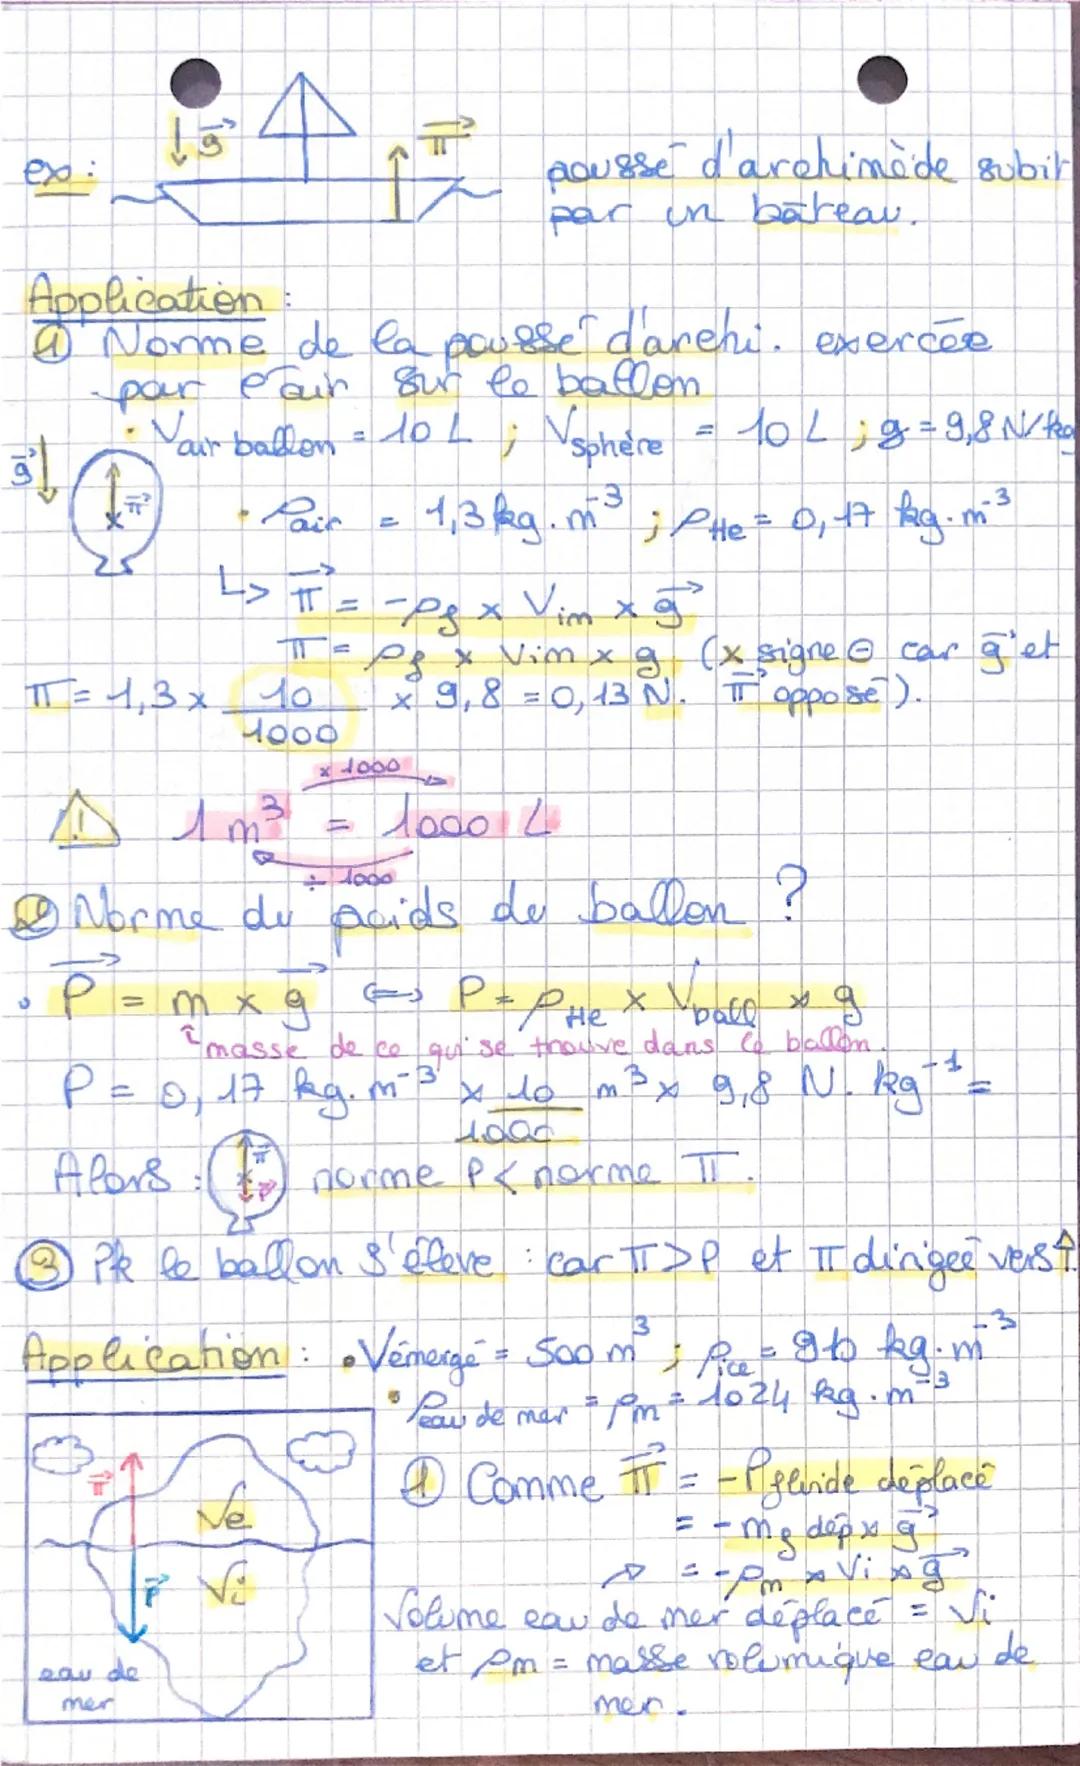 ex :
g⃗
π⃗
poussé d'archimède subit
par un bâteau.
Application :
① Norme de la poussé d'archi. exercée
par l'air sur le ballon
g⃗
π⃗
• Vair ballon = 10 L ; Vsphère = 10 L ; g = 9,8 N/kg
• ρair = 1,3 kg.m⁻³ ; ρHe = 0,17 kg.m⁻³
↳ π⃗ = -ρf × Vim × g⃗
π = ρf × Vim × g (x signe ⊖ car g⃗ et
π = 1,3 × 10/1000 × 9,8 = 0,13 N. π⃗ opposé).
× 1000
⚠ 1 m³ = 1000 L
÷ 1000
② Norme du poids du ballon ?
• P⃗ = m × g⃗ ⇔ P = ρHe × Vball × g
↑masse de ce qui se trouve dans le ballon.
P = 0,17 kg.m⁻³ × 10/1000 m³ × 9,8 N.kg⁻¹ =
Alors : π⃗ P⃗ norme P < norme π.
③ Pk le ballon s'éleve : car π > P et π dirigeé vers ↑.
Application : • Vémergé = 500 m³ ; ρice = 910 kg.m⁻³
• ρeau de mer = ρm = 1024 kg.m⁻³
π⃗
Ve
P⃗
Vi
eau de
mer
① Comme π⃗ = -Pfluide déplacé
= -mf dép × g⃗
↗ = -ρm × Vi × g⃗
Volume eau de mer déplacé = Vi
et ρm = masse volumique eau de
mer.